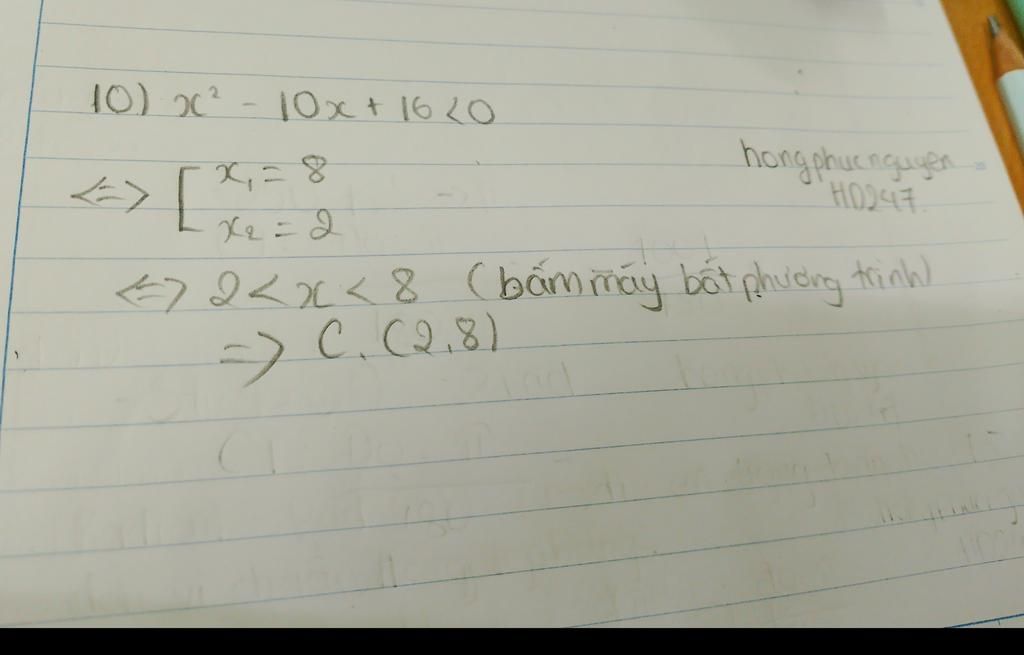 10) x² - 10x + 16 < 0
<=> [ x₁ = 8
x₂ = 2
hongphucnguyen
HD247.
<=> 2 < x < 8 (bấm máy bất phương trình)
=> C. (2,8)